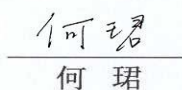 何珺
何 珺